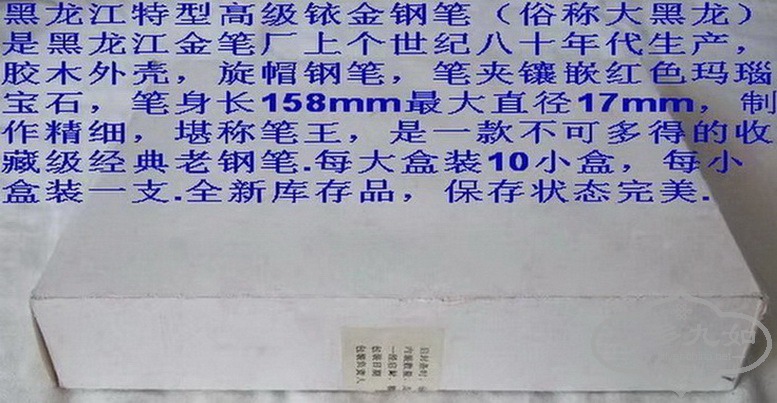 黑龙江特型高级铱金钢笔（俗称大黑龙）
是黑龙江金笔厂上个世纪八十年代生产，
胶木外壳，旋帽钢笔，笔夹镶嵌红色玛瑙
宝石，笔身长158mm最大直径17mm，制
作精细，堪称笔王，是一款不可多得的收
藏级经典老钢笔.每大盒装10小盒，每小
盒装一支.全新库存品，保存状态完美.
启封备时，
内装数量，
一经启封，
包装日期
包装负责人
九如